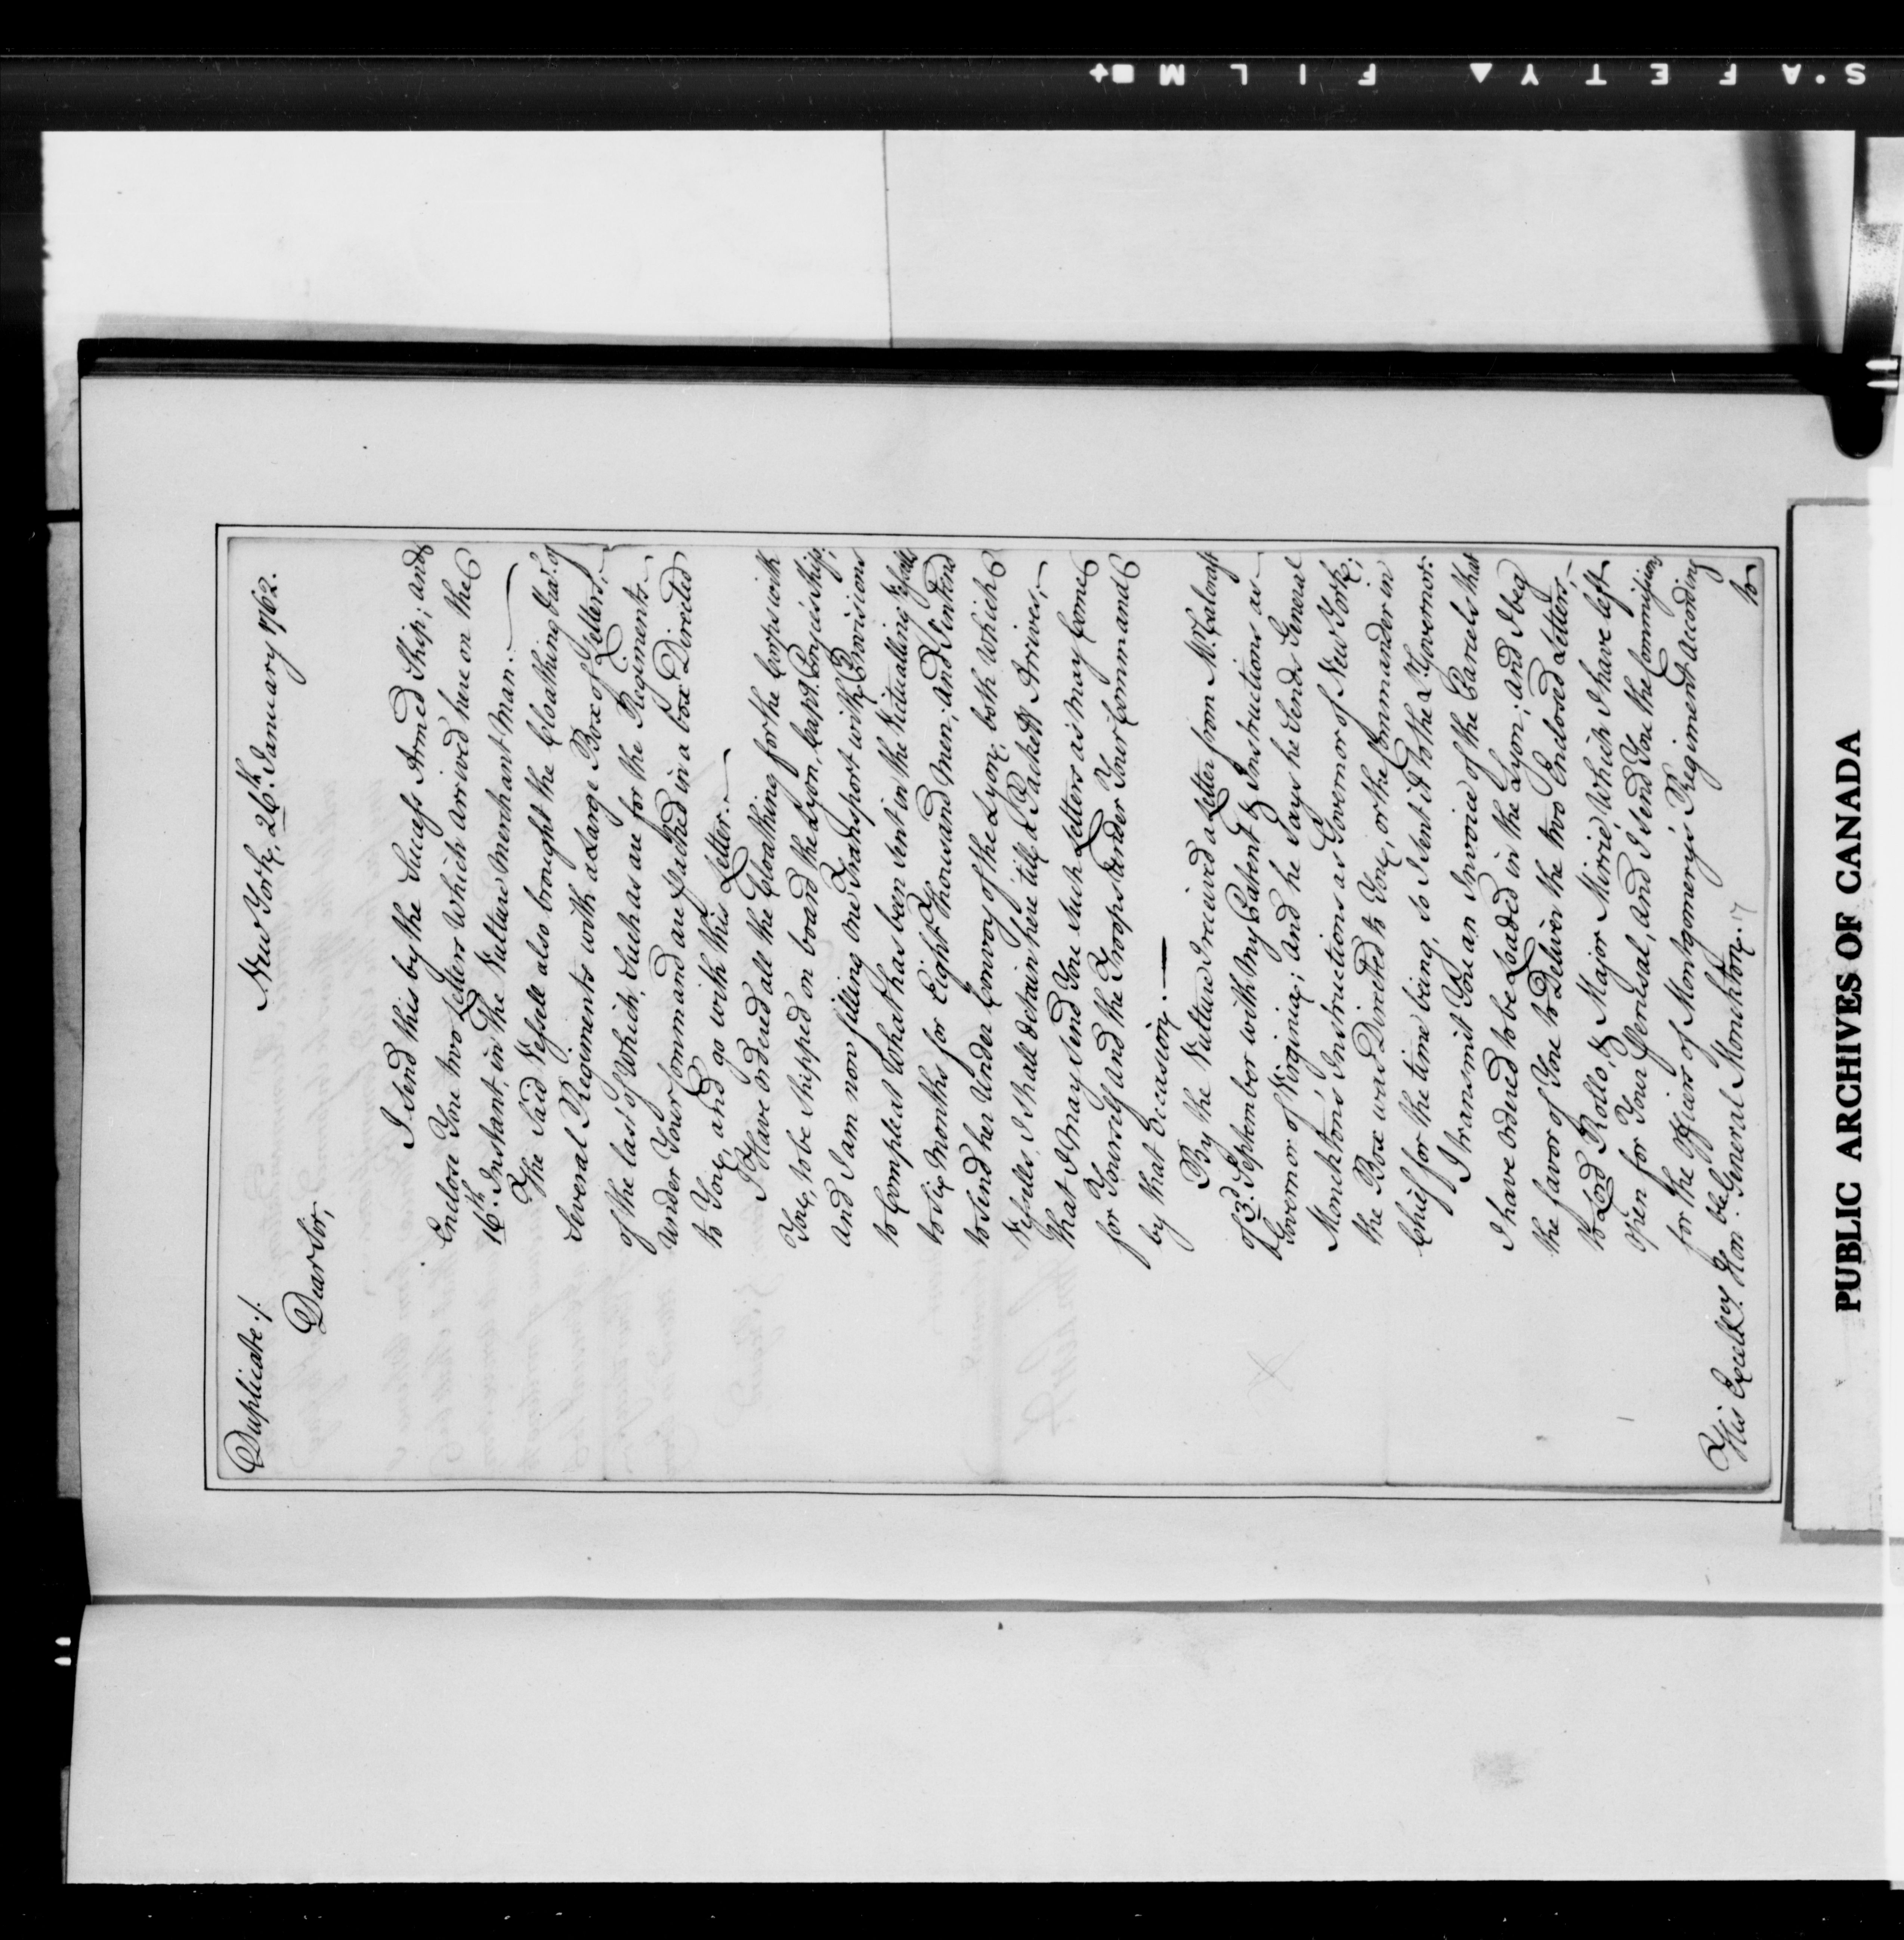 Duplicate:/.
New York, 26th. January 1762.
Dear Sir,
I Send this by the Success Armed Ship; and
Enclose You two Letters which arrived here on the
16th. Instant, in The Vulture Merchant Man.
The Said Vessell also brought the Cloathing &ca. of
Several Regiments with a Large Box of Letters,
of the last of which, Such as are for the Regiments
under Your Command are packed in a box Directed
to You, and go with this Letter.
I Have ordered all the Cloathing for the Corps with
You, to be Shipped on board the Lyon, Capt.
And I am now filling One Transport with Provisions
to Compleat What has been Sent in the Victualling Vessells
to Six Months for Eight Thousand Men; And I intend
to Send her Under Convoy of the Lyon, both which
Vessells, I Shall detain here till a Packett Arrives,
that I may Send You Such Letters as may Come
for Yourself and the Troops Under Your Command
by that Occasion.
By the Vulture I received a Letter from Mr. Calcraft
of 3d. September with My Patent & Instructions as
Governor of Virginia; And he Says he Sends General
Monckton's Instructions as Governor of New York;
the Box was Directed to You, or the Commander in
Chief for the time being, So I Sent it to the Lt. Governor.
I transmit You an Invoice of the Parcels that
I have Ordered to be Loaded in the Lyon; And I beg
the favor of You to Deliver the two Enclosed Letters,
to Lord Rollo, & Major Mirrie, Which I have left
open for Your Perusal, And I Send You the Commissions
for the Officers of Montgomery's Regiment According
His Excellcy. Honble. General Monckton. 17
to
PUBLIC ARCHIVES OF CANADA
SAFETY FILM